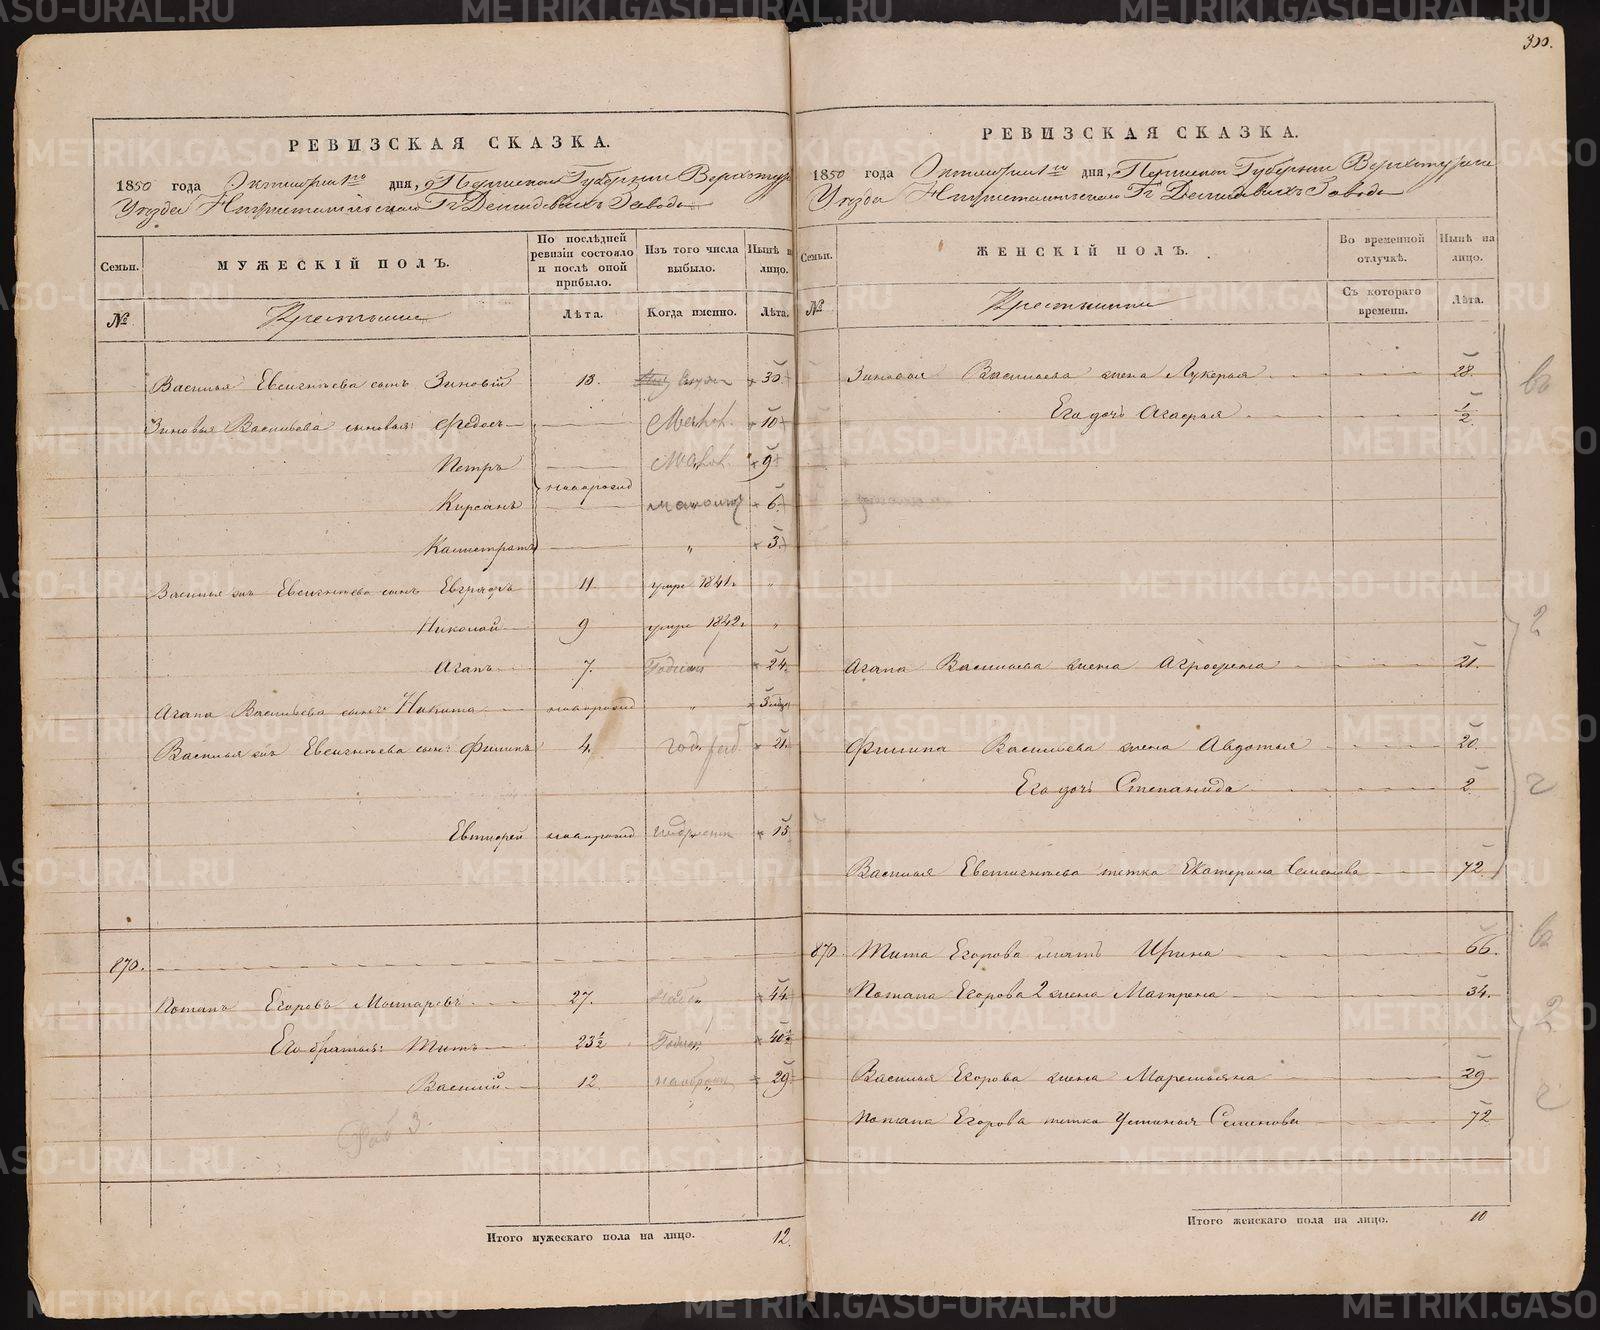 300.
РЕВИЗСКАЯ СКАЗКА.
1850 года Октября 1го дня, Пермской Губернии Верхотур
Уезда Нижнетагильскаго Гг Демидовыхъ Завода
Семьи.
МУЖЕСКІЙ ПОЛЪ.
По послѣдней ревизіи состояло и послѣ оной прибыло.
Изъ того числа выбыло.
Нынѣ на лицо.
№
Крестьяне
Лѣта.
Когда именно.
Лѣта.
Василья Евсигнѣева сынъ Зиновій 13. 30
Зиновья Васильева сыновья: Федосъ 10
Петръ 9
новорожд
Кирсанъ 6
Калистратъ " 3
Василья Евсигнѣева сынъ Евграфъ 11 умре 1841. "
Николай 9 умре 1842. "
Агапъ 7. 24.
Агапа Васильева сынъ Никита новорожд "
Василья Евсигнѣева сынъ Филипъ 4. 21.
Евтифей новорожд 15
870.
Потапъ Егоровъ 27. 44.
Его братья: Титъ 23½ 40½
Василій 12 29
Раб 3.
Итого мужескаго пола на лицо. 12.
РЕВИЗСКАЯ СКАЗКА.
1850 года Октября 1го дня, Пермской Губернии Верхотурскаго
Уезда Нижнетагильскаго Гг Демидовыхъ Завода
Семьи.
ЖЕНСКІЙ ПОЛЪ.
Во временной отлучкѣ.
Нынѣ на лицо.
№
Крестьянки
Съ котораго времени.
Лѣта.
Зиновья Васильева жена Лукерья 28.
Его дочь Агафья ½
Агапа Васильева жена Аграфена 21.
Филипа Васильева жена Авдотья 20.
Его дочь Степанида 2
Василья Евстигнѣева тетка Екатерина Семенова 72.
870 Тита Егорова мать Ирина 66.
Потапа Егорова 2 жена Матрена 34.
Василья Егорова жена Маремьяна 29
Потапа Егорова тетка Устинья Семенова 72
Итого женскаго пола на лицо. 10
METRIKI.GASO-URAL.RU